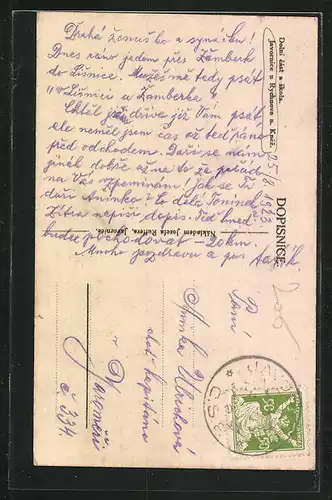 Drahá ženuško a synáčku!
Dnes ráno jedem přes Žamberk
do Lišnice. Můžeš mě tedy psát
"v Lišnici u Žamberka"
Chtěl jsem dříve již Vám psát,
ale neměl jsem čas až teď ráno
před odchodem. Daří se nám
jináč dobře až na to že pořád
na Vás vzpomínám. Jak se ti
daří Aninko? Co dělá Toníne
Zítra napíši dopis. Teď hned
budem pochodovat 20 km.
Mnoho pozdravu a pus
Dolní část a škola.
Javornice u Rychnova n. Kněž.
25/8 1923
DOPISNICE.
Nákladem Josefa Rufera, Javornice.
Paní
Aninka Ulrichová
choť kapitána
v Jaroměři
č 334